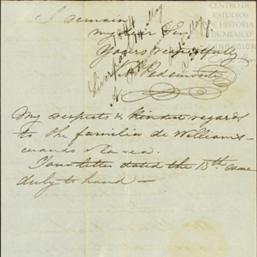 CENTRO DE
ESTUDIOS
DE HISTORIA
DE MEXICO
I remain
my dear Sir
Yours respectfully
My respects & kindest regards
to the familia de Williams
cuando la vea.
Your letter dated the 15th came
duly to hand —